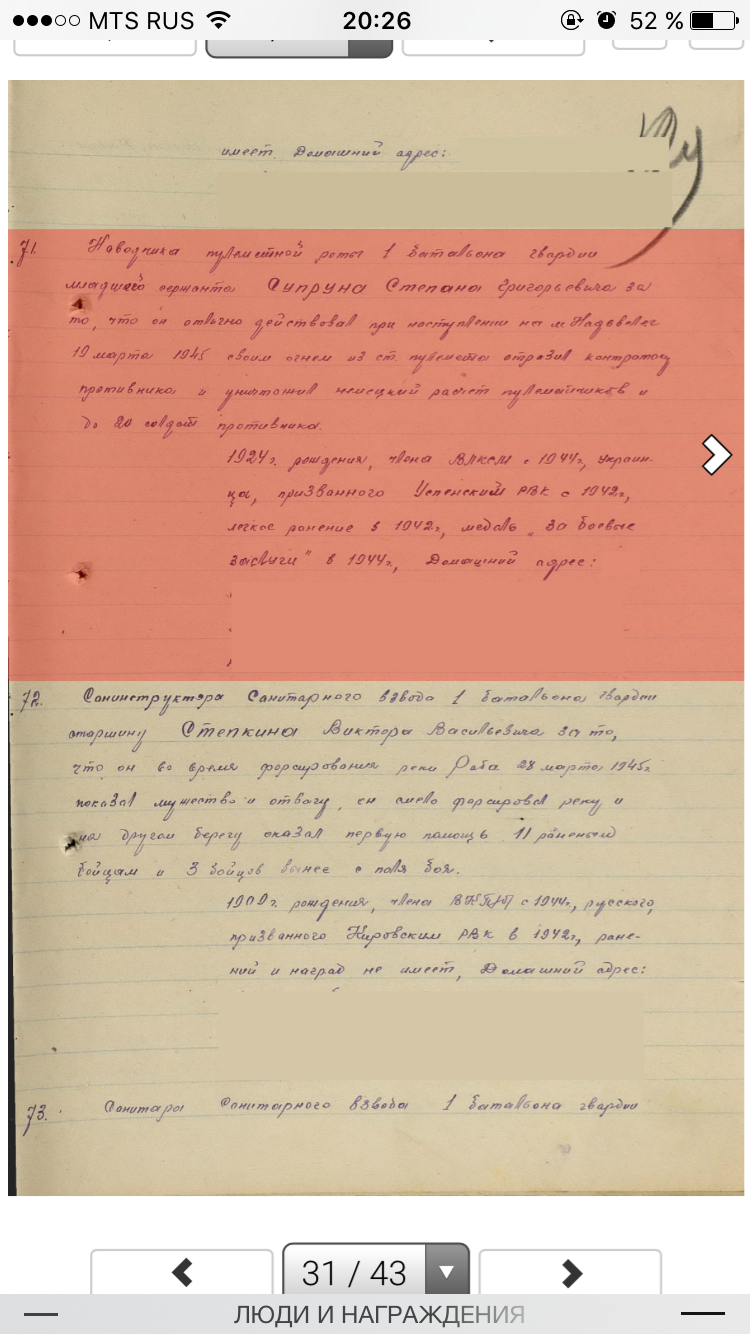 MTS RUS 20:26 52 %
имеет. Домашний адрес:
71. Наводчика пулеметной роты 1 батальона гвардии
младшего сержанта Супруна Степана Григорьевича за
то, что он отлично действовал при наступлении на м.
19 марта 1945 своим огнем из ст. пулемета отразил контратаку
противника и уничтожил немецкий расчет пулеметчиков и
до 20 солдат противника.
1924г. рождения, члена ВЛКСМ с 1944г., украин-
ца, призванного Успенским РВК с 1942г.,
легкое ранение в 1942г., медаль „За боевые
заслуги" в 1944г., Домашний адрес:
72. Санинструктора Санитарного взвода 1 батальона гвардии
старшину Степкина Виктора Васильевича за то,
что он во время форсирования реки Раба 28 марта 1945г.
показал мужество и отвагу, он смело форсировал реку и
на другом берегу оказал первую помощь 11 раненым
бойцам и 3 бойцов вынес с поля боя.
рождения, члена ВКП/б/ с 1944г., русского,
призванного Кировским РВК в 1942г., ране-
ний и наград не имеет, Домашний адрес:
73. Санитара Санитарного взвода 1 батальона гвардии
31 / 43
ЛЮДИ И НАГРАЖДЕНИЯ